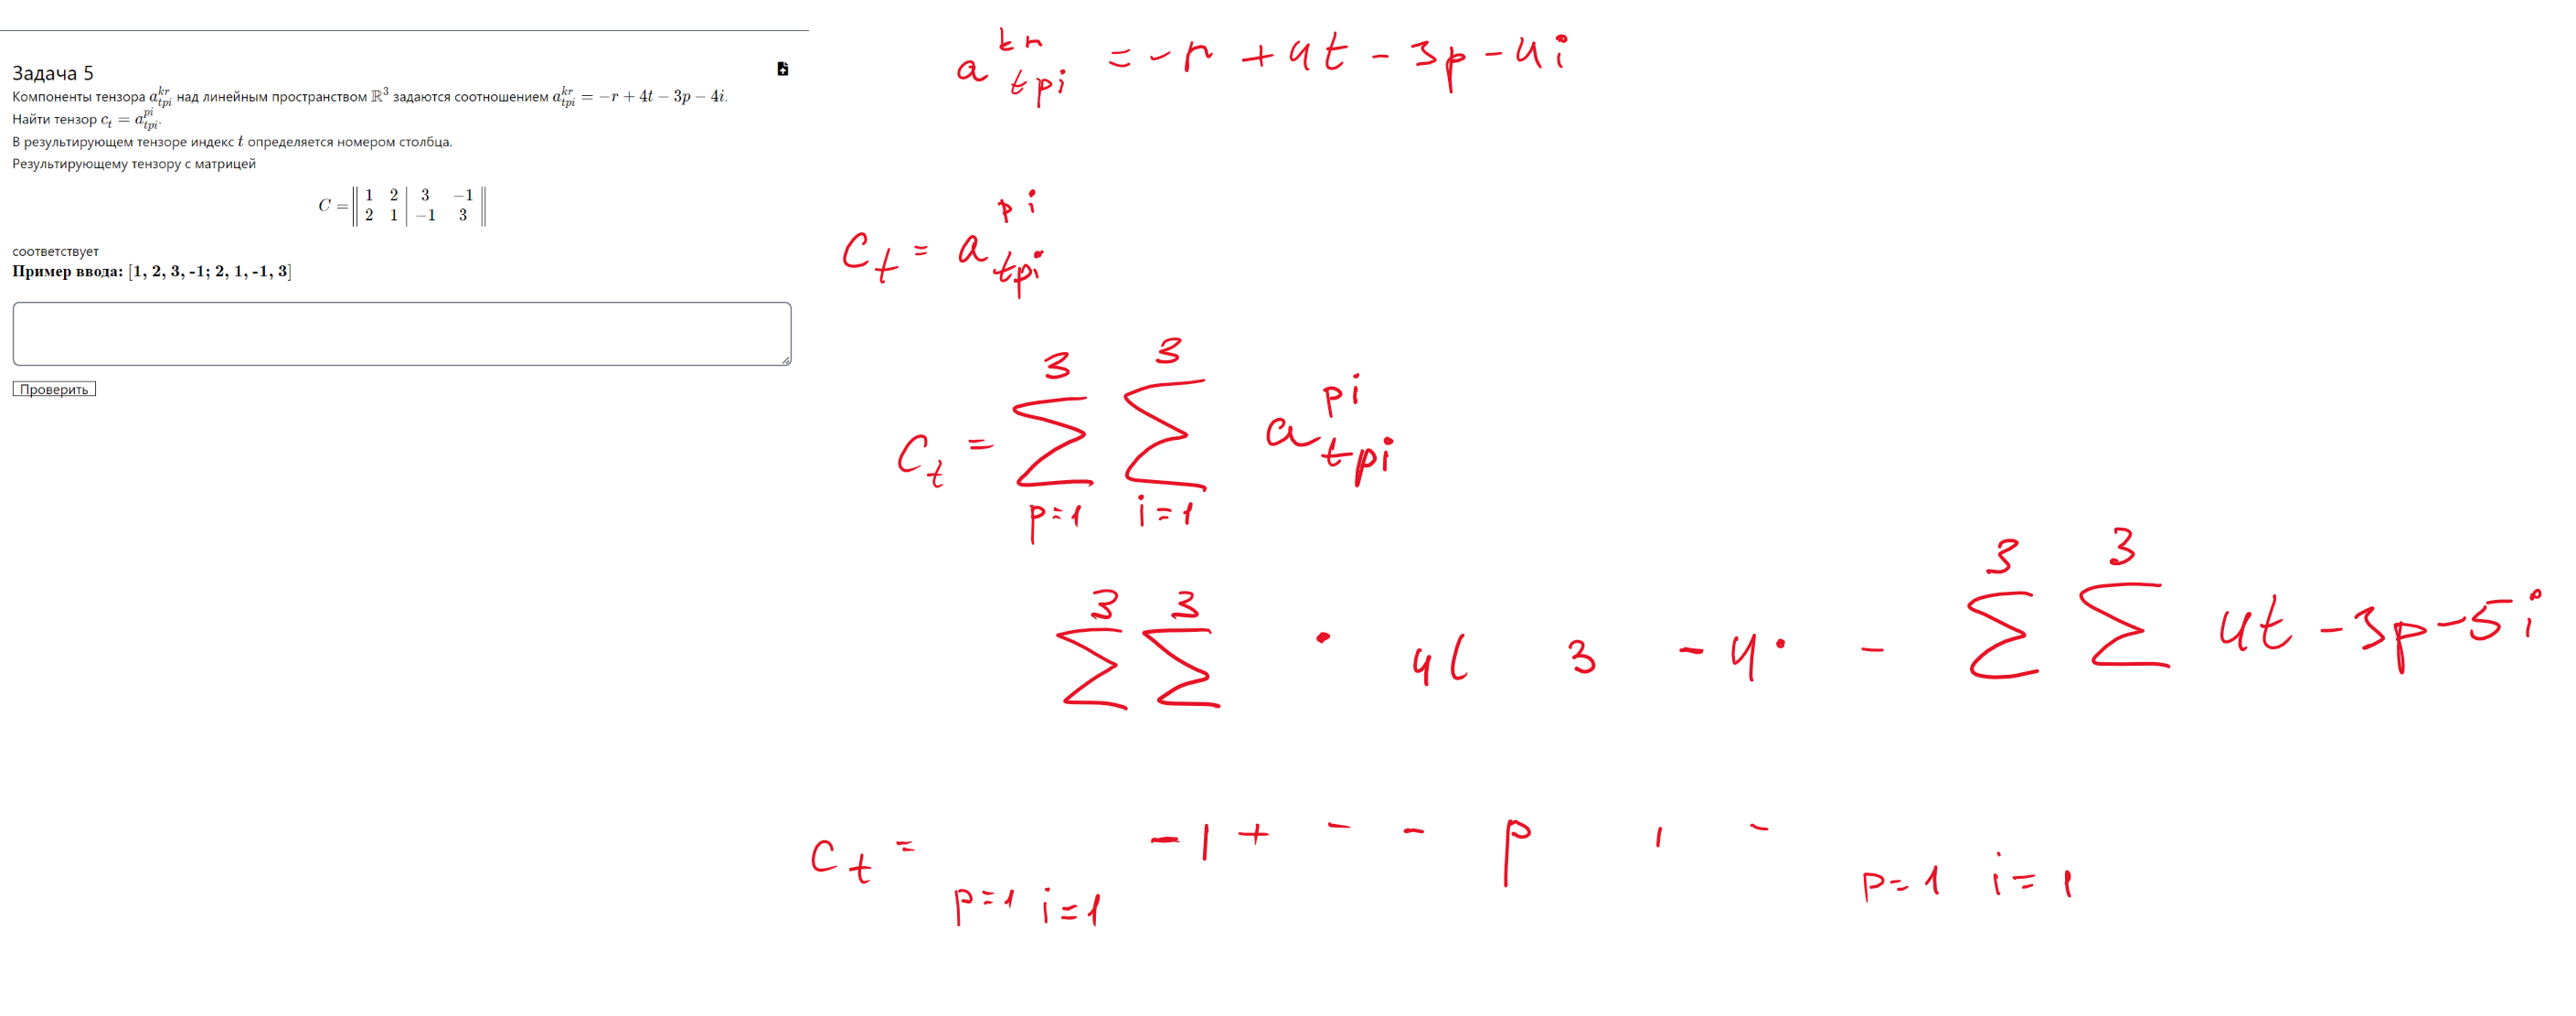 Задача 5
Компоненты тензора a^{kr}_{tpi} над линейным пространством ℝ^3 задаются соотношением a^{kr}_{tpi} = −r + 4t − 3p − 4i.
Найти тензор c_t = a^{pi}_{tpi}.
В результирующем тензоре индекс t определяется номером столбца.
Результирующему тензору с матрицей
C = || 1 2 | 3 −1 ||
|| 2 1 | −1 3 ||
соответствует
Пример ввода: [1, 2, 3, -1; 2, 1, -1, 3]
Проверить
a^{kr}_{tpi} = −r + 4t − 3p − 4i
c_t = a^{pi}_{tpi}
c_t = ∑_{p=1}^{3} ∑_{i=1}^{3} a^{pi}_{tpi}
∑^3 ∑^3 · 4 3 − 4 · − ∑^3 ∑^3 4t − 3p − 5i
c_t = p=1 i=1 − 1 + − − p − p=1 i=1